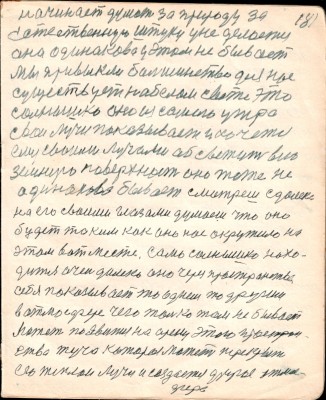 начинает думат за природу за
180
естественную штуку уже делаети
она одинакова у этом не бывает
мы привыкли балшинство дня нас
существует на белом свете это
солнышко оно из самого утра
свои лучи показывает и хочети
ему своими лучами обсветит всю
земную поверхност оно тоже не
одинаково бывает смотрети сдалека
на его своими глазами думаети что оно
будет таким как оно нас окружило на
этом вот месте, само солнышко нахо-
дится очен далеко оно через пространства
себя показывает то одним то другим
в атмосфере чего толко там не бывает
может появится на арену этого простран-
ства туча которая может перекрыт
его теплом лучи и создаети другое атмо
сфера